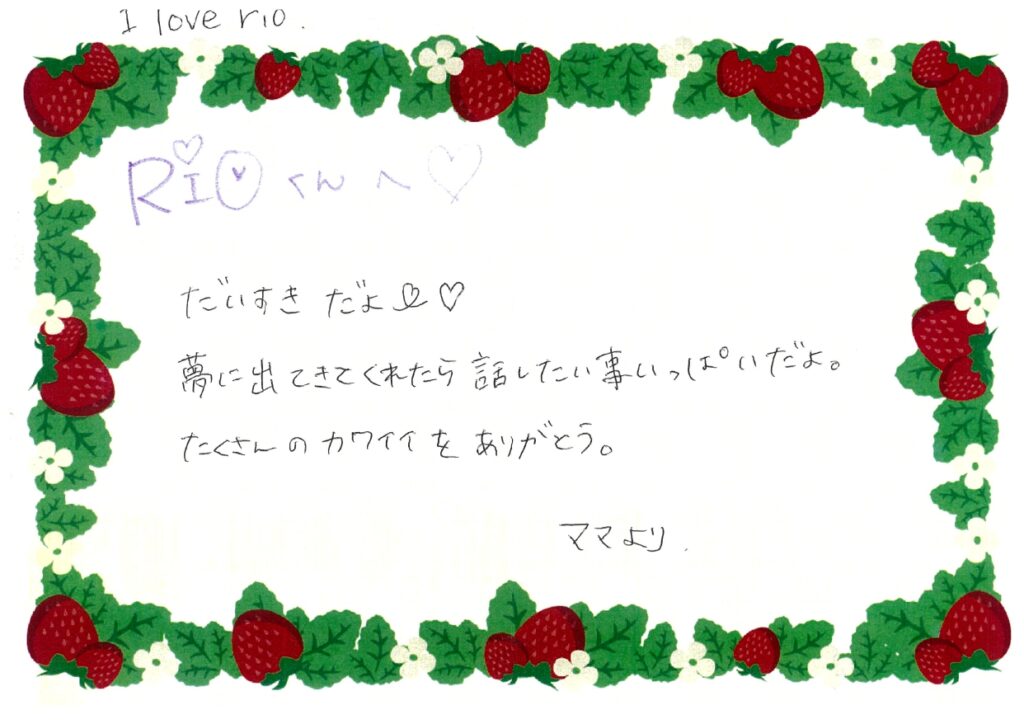 I love rio.
RIOくんへ♡
だいすきだよ♡♡
夢に出てきてくれたら話したい事いっぱいだよ。
たくさんのカワイイをありがとう。
ママより.